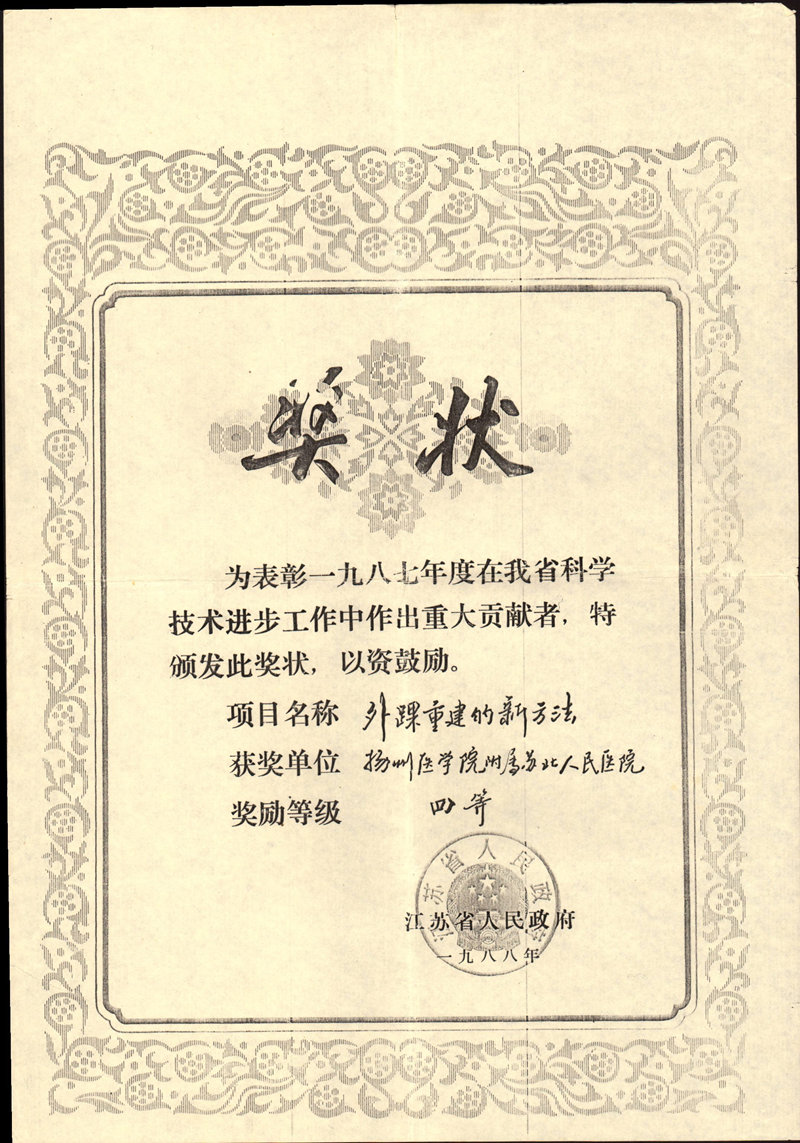 奖状
为表彰一九八七年度在我省科学
技术进步工作中作出重大贡献者，特
颁发此奖状，以资鼓励。
项目名称 外踝重建的新方法
获奖单位 扬州医学院附属苏北人民医院
奖励等级 四等
江苏省人民政府
江苏省人民政府
一九八八年